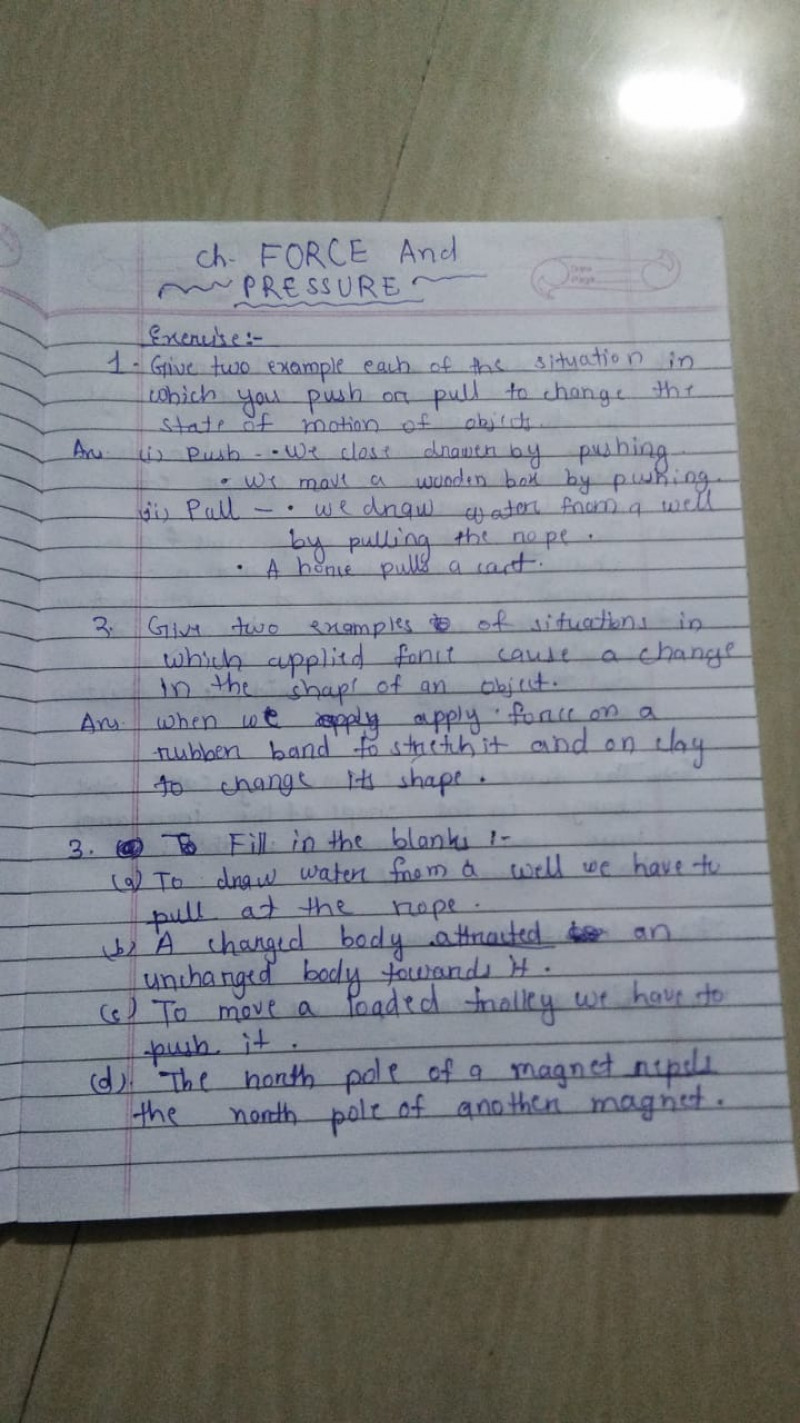 ch- FORCE And
PRESSURE
Exercise:-
1. Give two example each of the situation in
which you push or pull to change the
state of motion of objects.
Ans. (i) Push - • We close drawer by pushing.
• We move a wooden box by pushing.
(ii) Pull - • we draw water from a well
by pulling the rope.
• A horse pulls a cart.
2. Give two examples of situations in
which applied force cause a change
in the shape of an object.
Ans. when we apply force on a
rubber band to stretch it and on clay
to change its shape.
3. Fill in the blanks :-
(a) To draw water from a well we have to
pull at the rope.
(b) A charged body attracted an
uncharged body towards it.
(c) To move a loaded trolley we have to
push it.
(d) The north pole of a magnet repels
the north pole of another magnet.